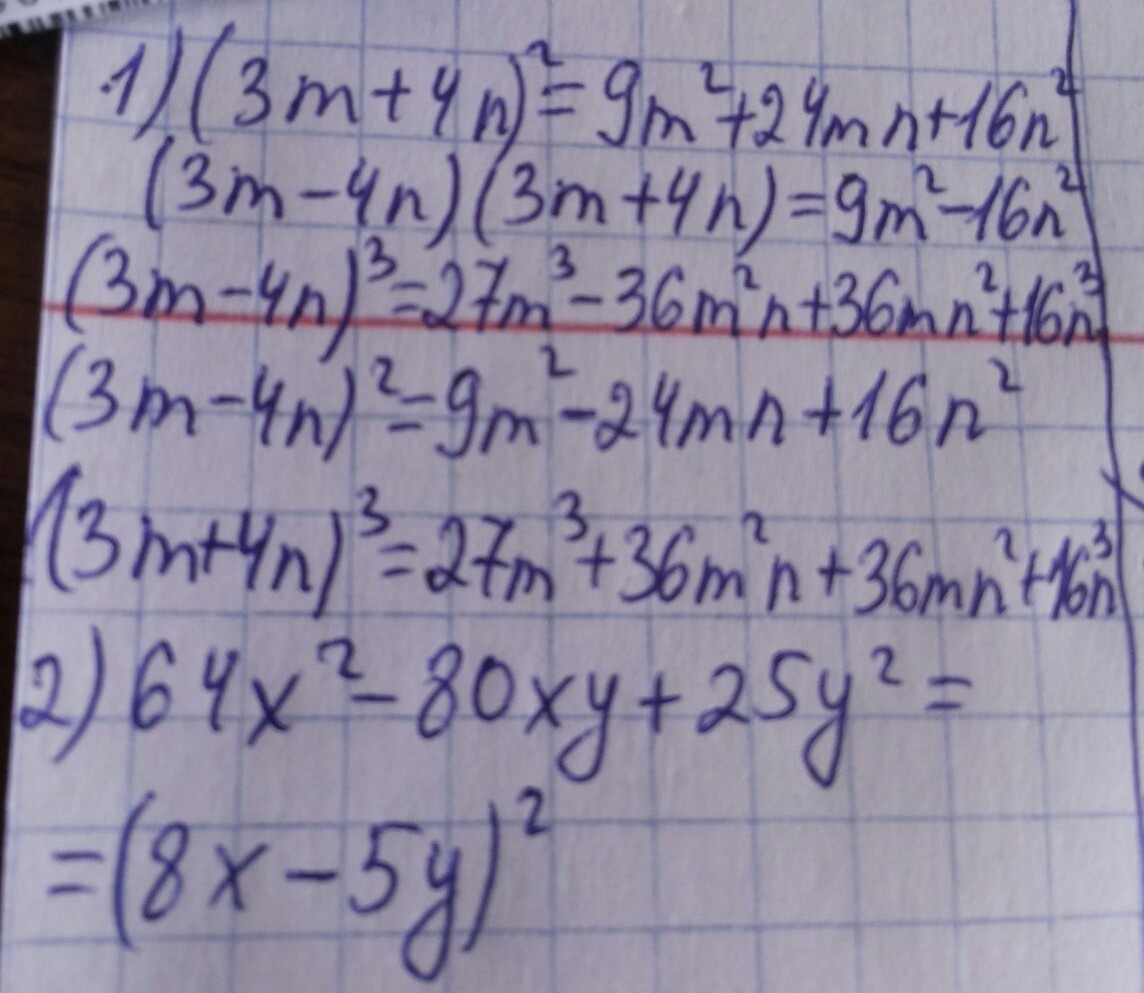 1) (3m+4n)²=9m²+24mn+16n²
(3m-4n)(3m+4n)=9m²-16n²
(3m-4n)³=27m³-36m²n+36mn²+16n³
(3m-4n)²=9m²-24mn+16n²
(3m+4n)³=27m³+36m²n+36mn²+16n³
2) 64x²-80xy+25y²=
=(8x-5y)²